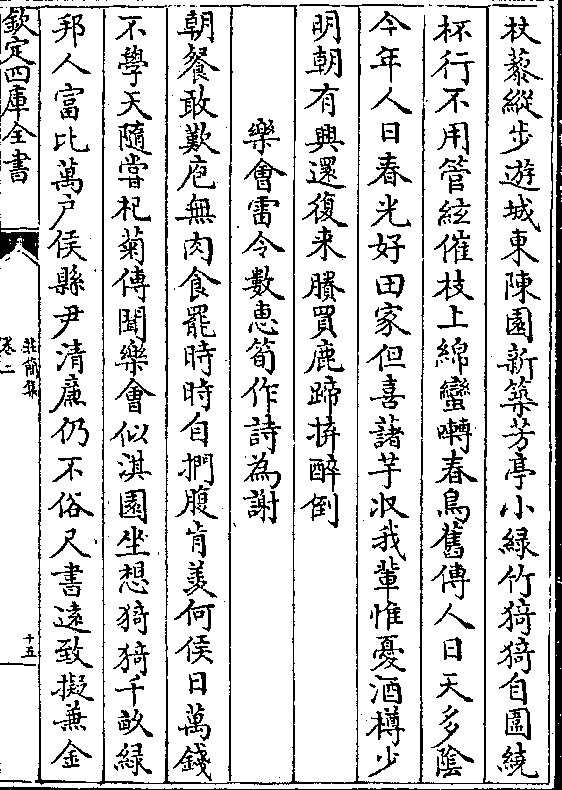 杖藜縱步遊城東陳園新築芳亭小綠竹猗猗自圍繞
杯行不用管絃催枝上綿蠻囀春鳥舊傳人日天多陰
今年人日春光好田家但喜藷芋收我輩惟憂酒樽少
明朝有興還復来賸買鹿蹄拚醉倒
樂會雷令數惠筍作詩為謝
朝餐敢歎庖無肉食罷時時自捫腹肯羡何侯日萬錢
不學天隨嘗杞菊傳聞樂會似淇園坐想猗猗千畝綠
邦人富比萬户侯縣尹清廉仍不俗尺書遠致擬兼金
欽定四庫全書
莊簡集
卷二
十五